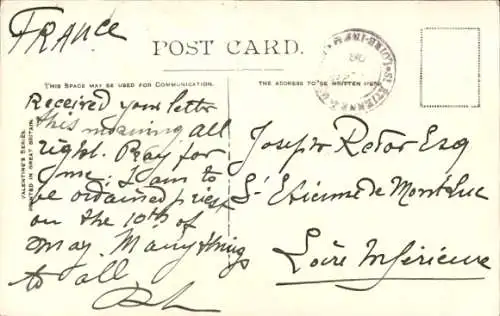 FRANCE
POST CARD.
THIS SPACE MAY BE USED FOR COMMUNICATION.
THE ADDRESS TO BE WRITTEN HERE
VALENTINE'S SERIES.
PRINTED IN GREAT BRITAIN.
Received your letter
this morning all
right. Pray for
me; I am to
be ordained priest
on the 10th of
May. Many things
to all
Joseph Retor Esq
St Etienne de Montluc
Loire Inférieure